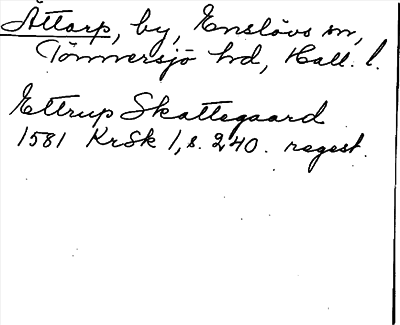 Åttarp, by, Enslövs sn,
Tönnersjö hd, Hall. l.
Ettrup Skattegaard
1581 KrSk 1, s. 240. regest.